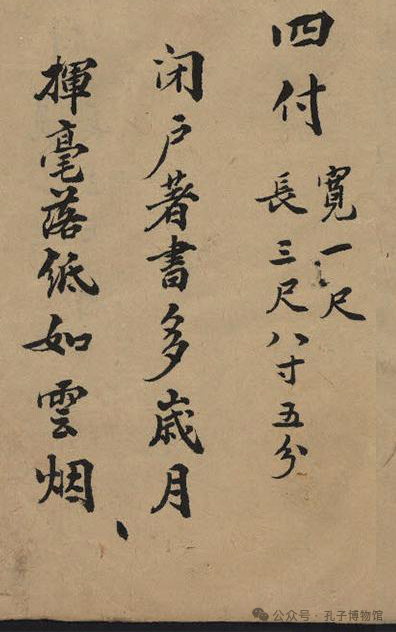 四付
寬一尺
長三尺八寸五分
闭户著書多歲月
揮毫落紙如雲烟
公众号 · 孔子博物馆